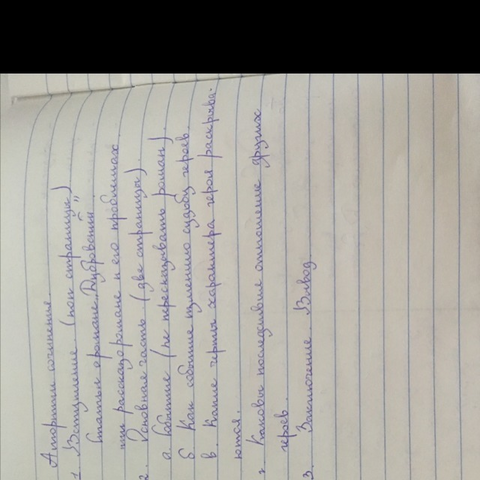 Алгоритм сочинения.
1 Вступление (пол страницы)
Статья о романе „Дубровский"
или рассказ о романе и его проблемах
2. Основная часть (две страницы).
а. Событие (не пересказывать роман)
б. Как событие изменило судьбу героев.
в. Какие черты характера героя раскрыва-
ются.
г Каковы последствия отношение других
героев.
3. Заключение. Вывод